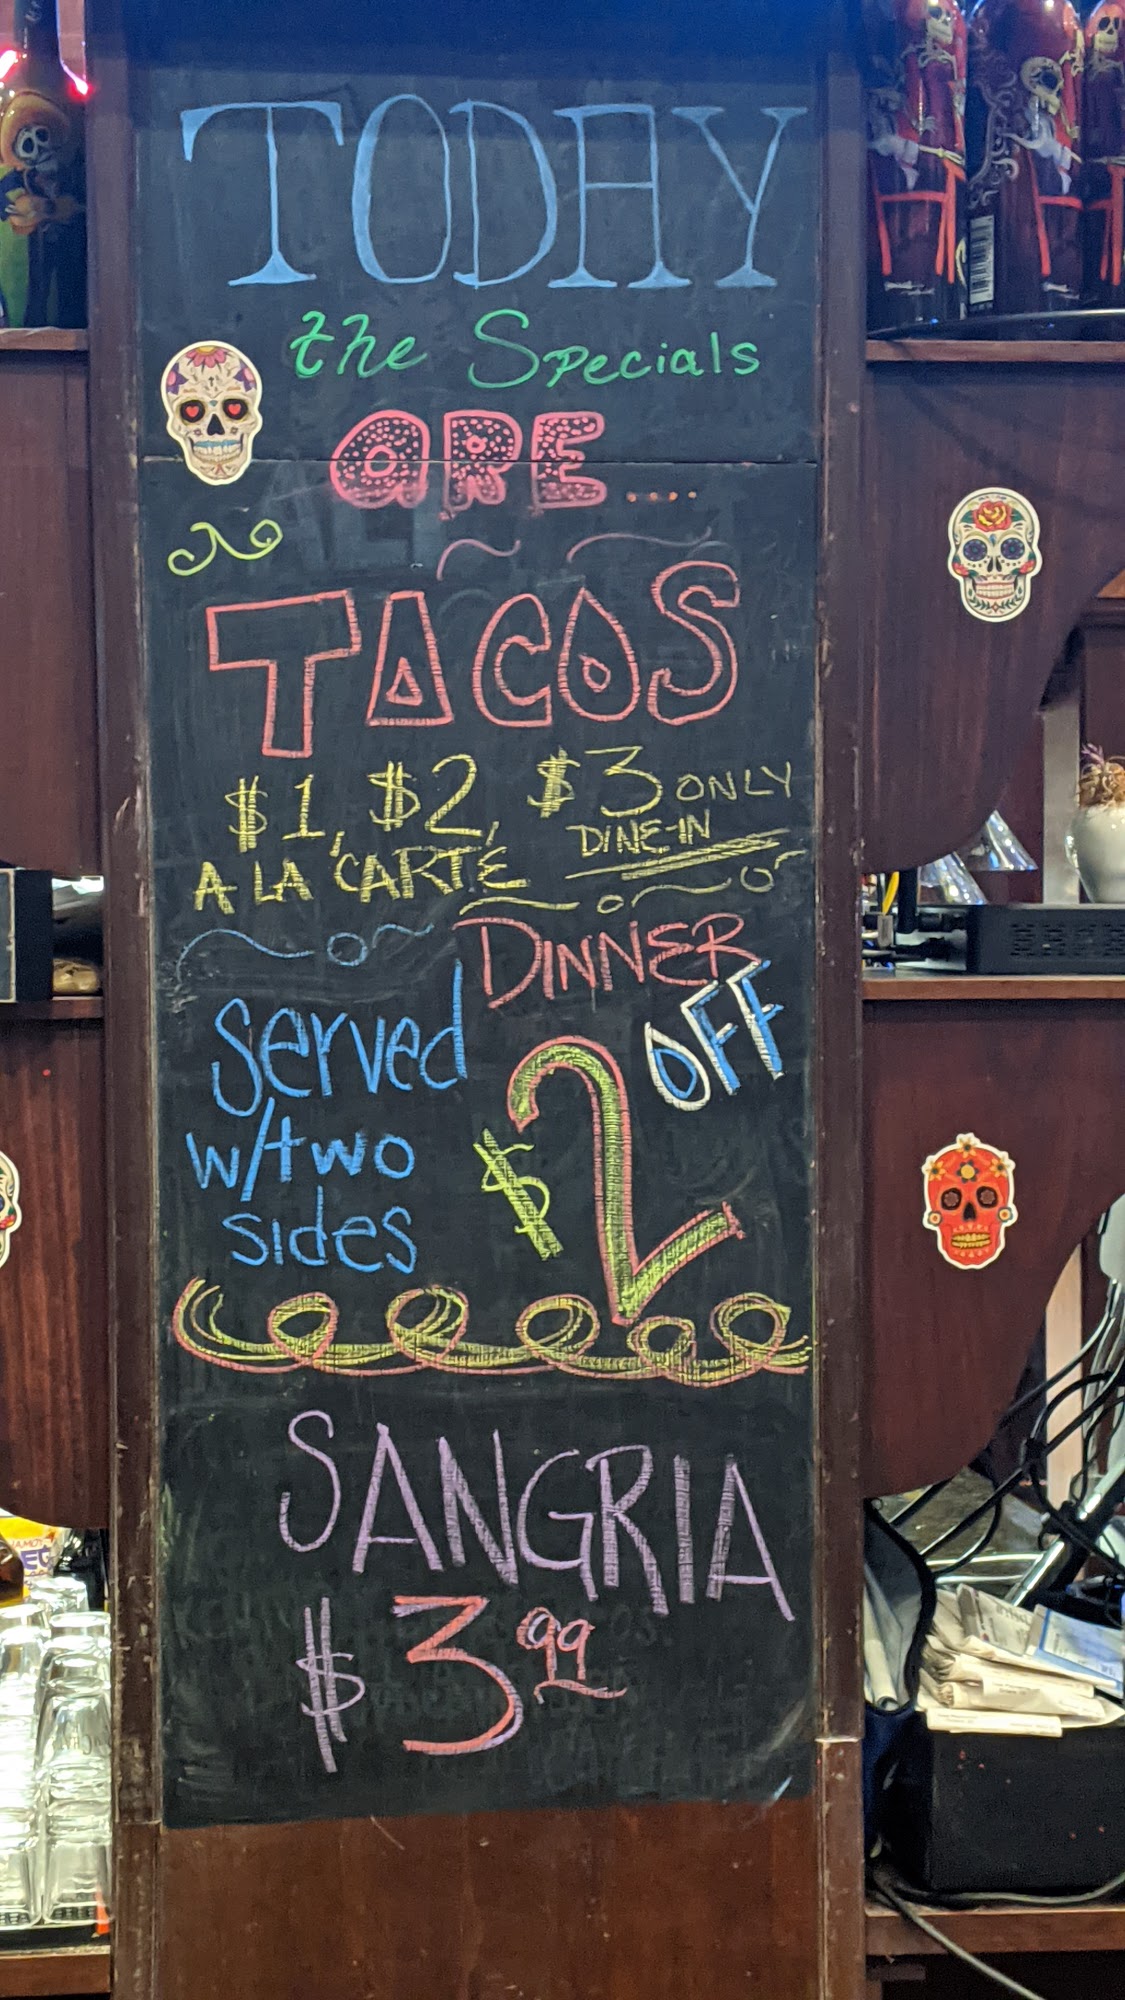 TODAY
the Specials
ARE....
TACOS
$1, $2, $3 ONLY
A LA CARTE DINE-IN
DINNER
Served
w/two
sides
$2 OFF
SANGRIA
$3.99